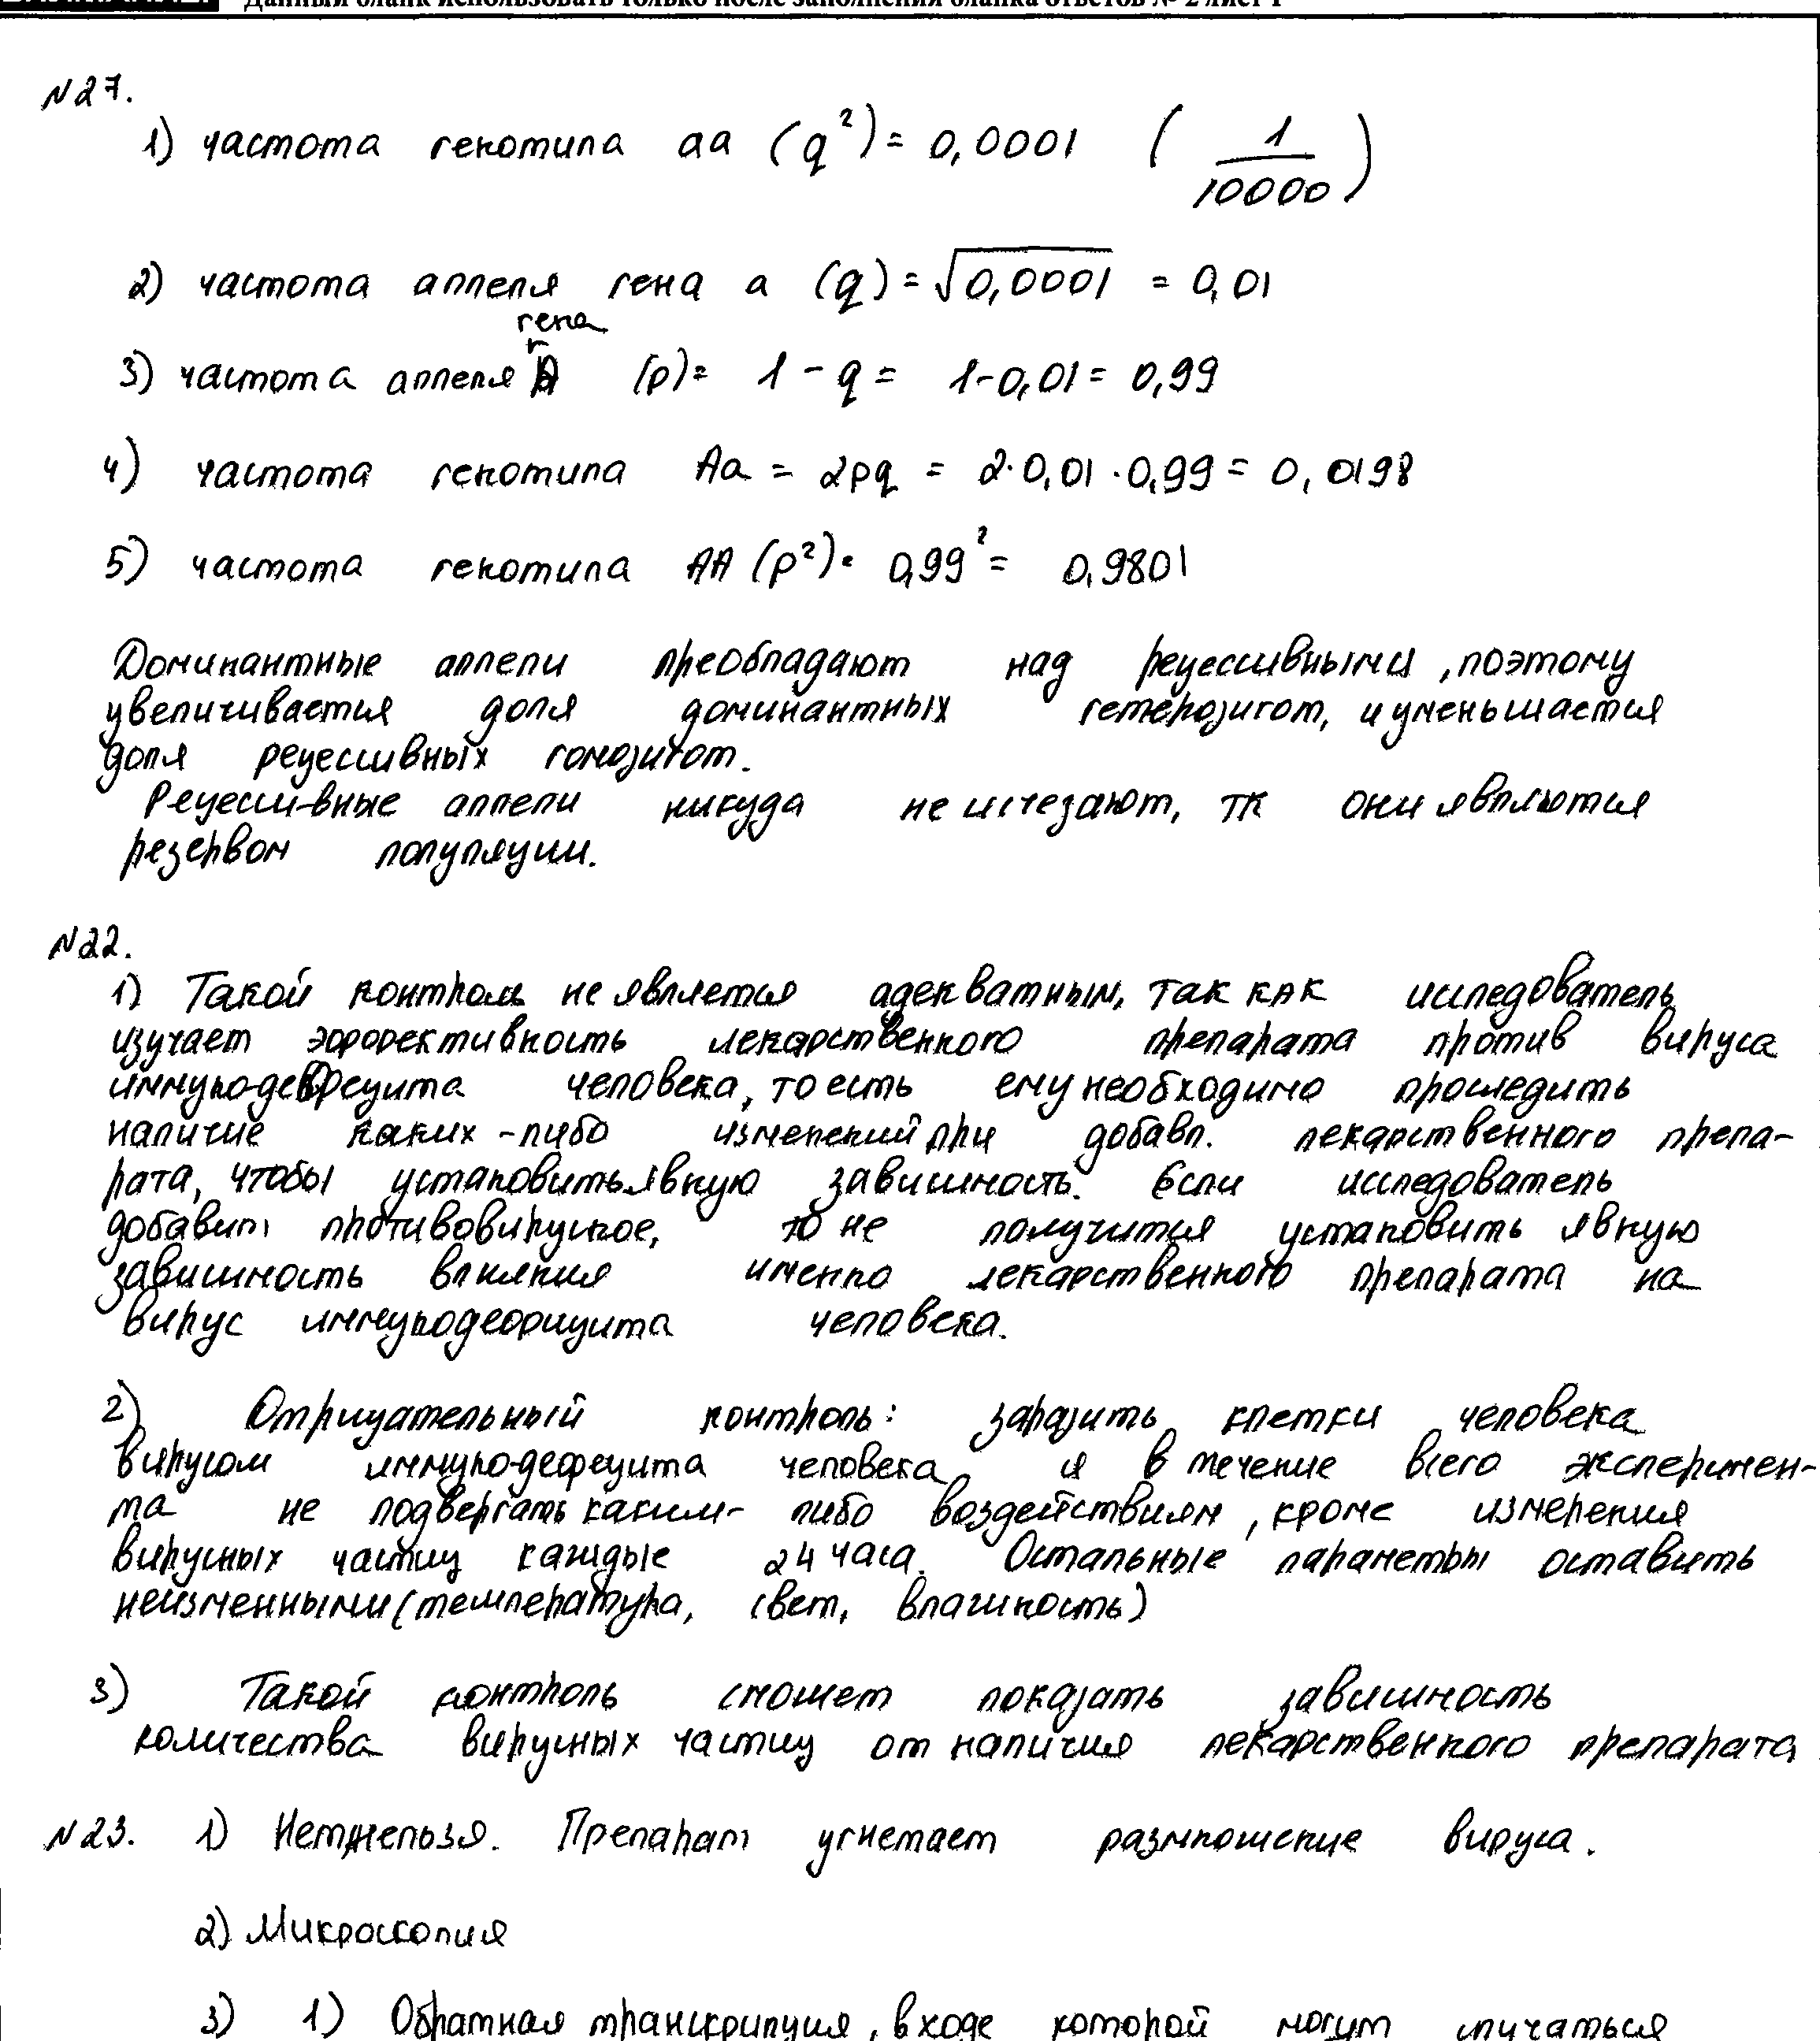 Данный бланк использовать только после заполнения бланка ответов № 2 лист 1
№27.
1) частота генотипа аа (q²) = 0,0001 (1/10000)
2) частота аллеля гена а (q) = √0,0001 = 0,01
гена
3) частота аллеля А (p) = 1 - q = 1-0,01 = 0,99
4) частота генотипа Аа = 2pq = 2·0,01·0,99 = 0,0198
5) частота генотипа АА (p²) = 0,99² = 0,9801
Доминантные аллели преобладают над рецессивными, поэтому
увеличивается доля доминантных гетерозигот, и уменьшается
доля рецессивных гомозигот.
Рецессивные аллели никуда не исчезают, тк они являются
резервом популяции.
№22.
1) Такой контроль не является адекватным, так как исследователь
изучает эффективность лекарственного препарата против вируса
иммунодефецита человека, то есть ему необходимо проследить
наличие каких-либо изменений при добавл. лекарственного препа-
рата, чтобы установить явную зависимость. Если исследователь
добавит противовирусное, то не получится установить явную
зависимость влияния именно лекарственного препарата на
вирус иммунодефицита человека.
2) Отрицательный контроль: заразить клетки человека
вирусом иммунодефецита человека и в течение всего эксперимен-
та не подвергать каким-либо воздействиям, кроме измерения
вирусных частиц каждые 24 часа. Остальные параметры оставить
неизменными (температура, свет, влажность)
3) Такой контроль сможет показать зависимость
количества вирусных частиц от наличия лекарственного препарата
№23. 1) Нет, нельзя. Препарат угнетает размножение вируса.
2) Микроскопия
3) 1) Обратная транскрипция, в ходе которой могут случаться